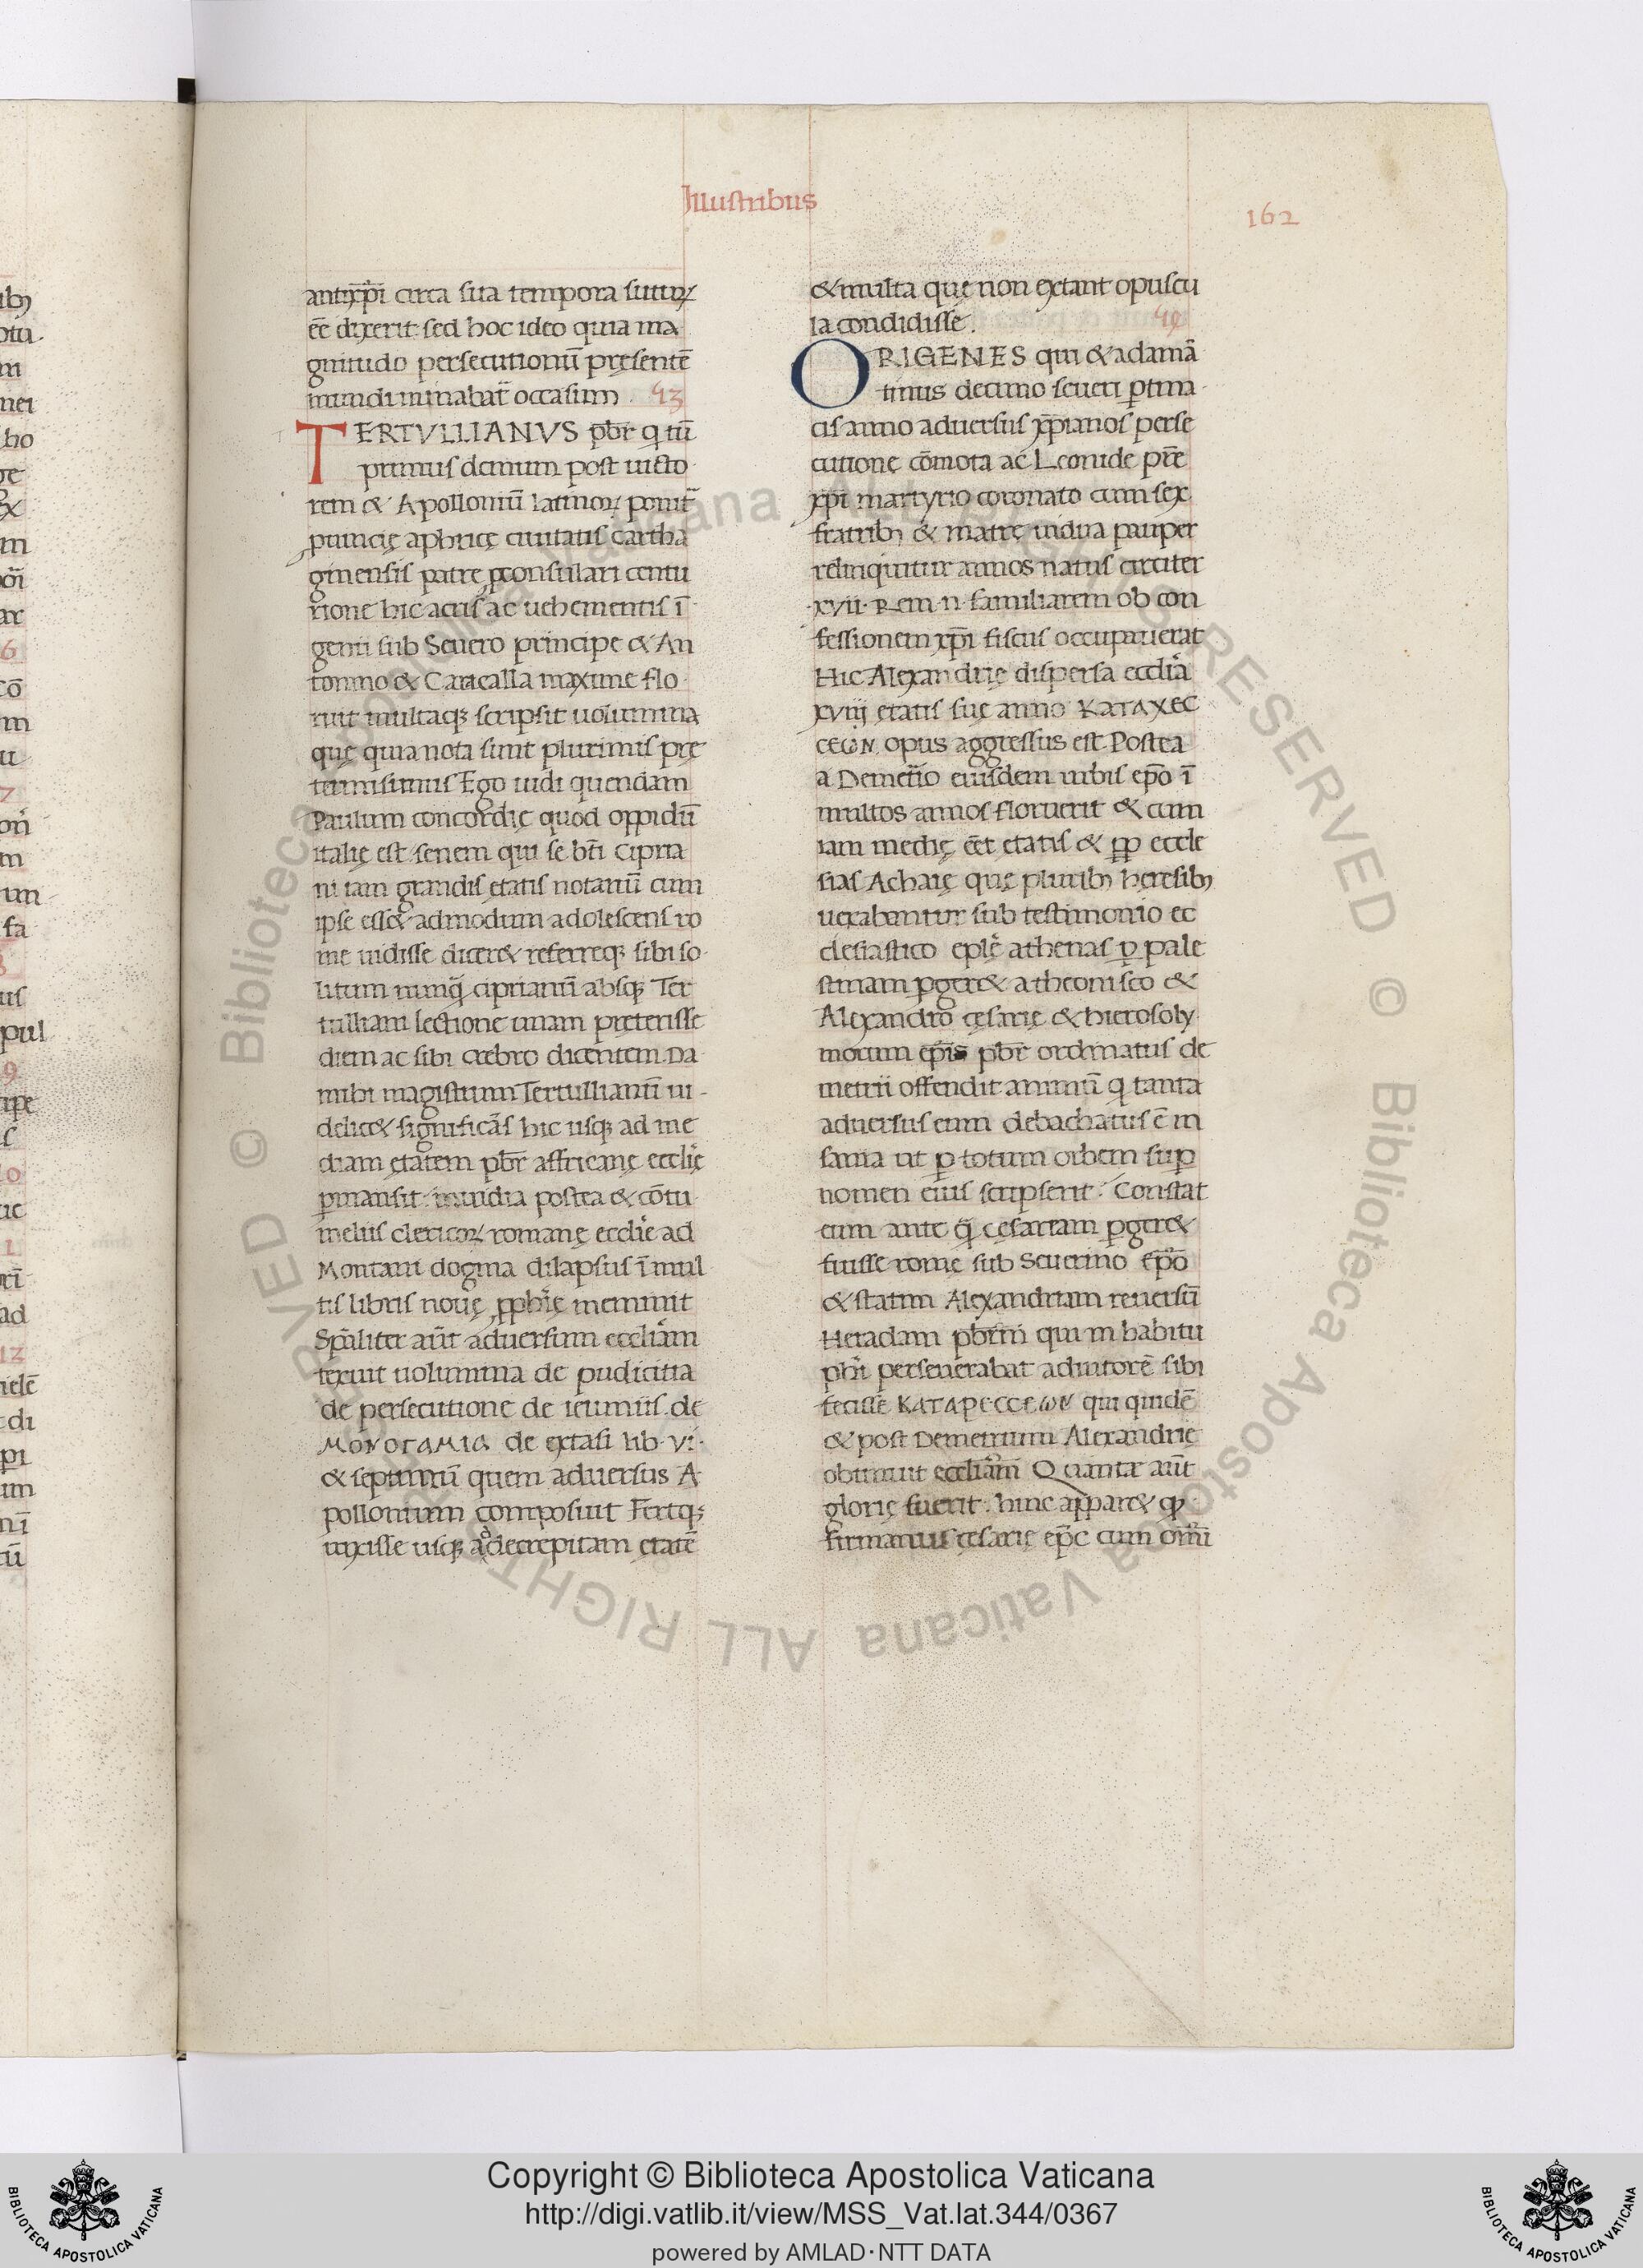 Illustribus
162
antix̅p̅i circa sua tempora futuꝝ
ee̅ dixerit sed hoc ideo quia ma
gnitudo persecutionu̅ pręsente̅
mundi minabat̅ occasum . 43
TERTVLLIANVS pb̅r q̣ tu̅
primus demum post uicto
rem & Apolloniu̅ latinoꝝ ponit̅
ꝓuincię aphricę ciuitatis cartha
ginensis patre ꝓconsulari centu
rione hic acris ac uehementis i̅
genii sub Seuero principe & An
tonino & Caracalla maxime flo
ruit multaqꝫ scripsit uolumina
quę quia nota sunt plurimis prę
termisimus Ego uidi quendam
Paulum concordię quod oppidu̅
italię est senem qui se bt̅i Cipria
ni iam grandis ętatis notariu̅ cum
ipse ess& admodum adolescens ro
mę uidisse dicer& referreqꝫ sibi so
litum nunq̅ᷓ ciprianu̅ absqꝫ Ter
tulliani lectione unam preterisse
diem ac sibi crebro dicentem Da
mihi magistrum Tertullianu̅ ui-
delic& significa̅s hic usqꝫ ad me
diam ętatem pb̅r affricanę eccl̅ię
ꝑmansit inuidia postea & co̅tu
meliis clericoꝝ romanę eccl̅ie ad
Montani dogma dilapsus i̅ mul
tis libris nouę ꝓph̅ię meminit
Spa̅liter au̅t aduersum eccl̅iam
texuit uolumina de pudicitia
de persecutione de ieiuniis de
ΜΟΝΟΓΑΜΙΑ de extasi lib· vi·
& septimu̅ quem aduersus A
pollonium composuit Ferτqꝫ
uixisse usqꝫ ad decrepitam ętate̅
& multa quę non extant opuscu
la condidisse.
ORIGENES qui & adama̅
tinus decimo seueri ꝑtina
cis anno aduersus xp̅ianos perse
cutione co̅mota ac Leonide pr̅e
xp̅i martyrio coronato cum sex
fratribꝫ & matre uidua pauper
relinquitur annos natus circiter
·xvii· Rem ·n· familiarem ob con
fessionem xp̅i fiscus occupauerat
Hic Alexandrię dispersa eccl̅ia
xviij ętatis suę anno ΚΑΤΑΧΕC
CΕѠΝ opus aggressus est Postea
a Demet̅io eiusdem urbis ep̅o i̅
multos annos floruerit & cum
iam medię ee̅t etatis & ꝑp eccle
sias Achaię quę pluribꝫ heresibꝫ
uexabantur sub testimonio ec
clesiastico epl̅e athenas ꝑ pale
stinam ꝑger& a theonisco &
Alexandro cęsarię & hierosoly
morum ep̅is pb̅r ordinatus de
metrii offendit animu̅ q̣ tanta
aduersus eum debachatus e̅ in
sania ut ꝑ totum orbem suꝑ
nomen eius scripserit· Constat
eum ante q̅ᷓ cęsaream ꝑger&
fuisse romę sub Seuerino ep̅o
& statim Alexandriam reuersu̅
Heradam pb̅rm qui in habitu
ph̅i perseuerabat adiutore̅ sibi
fecisse ΚΑΤΑΡΕCCΕѠΝ qui quide̅
& post Demetrium Alexandrię
obtinuit eccl̅iam Quantæ au̅t
glorię fuerit· hinc appar& qꝫ
firmanus cęsarię ep̅c cum om̅i
Copyright © Biblioteca Apostolica Vaticana
http://digi.vatlib.it/view/MSS_Vat.lat.344/0367
powered by AMLAD·NTT DATA